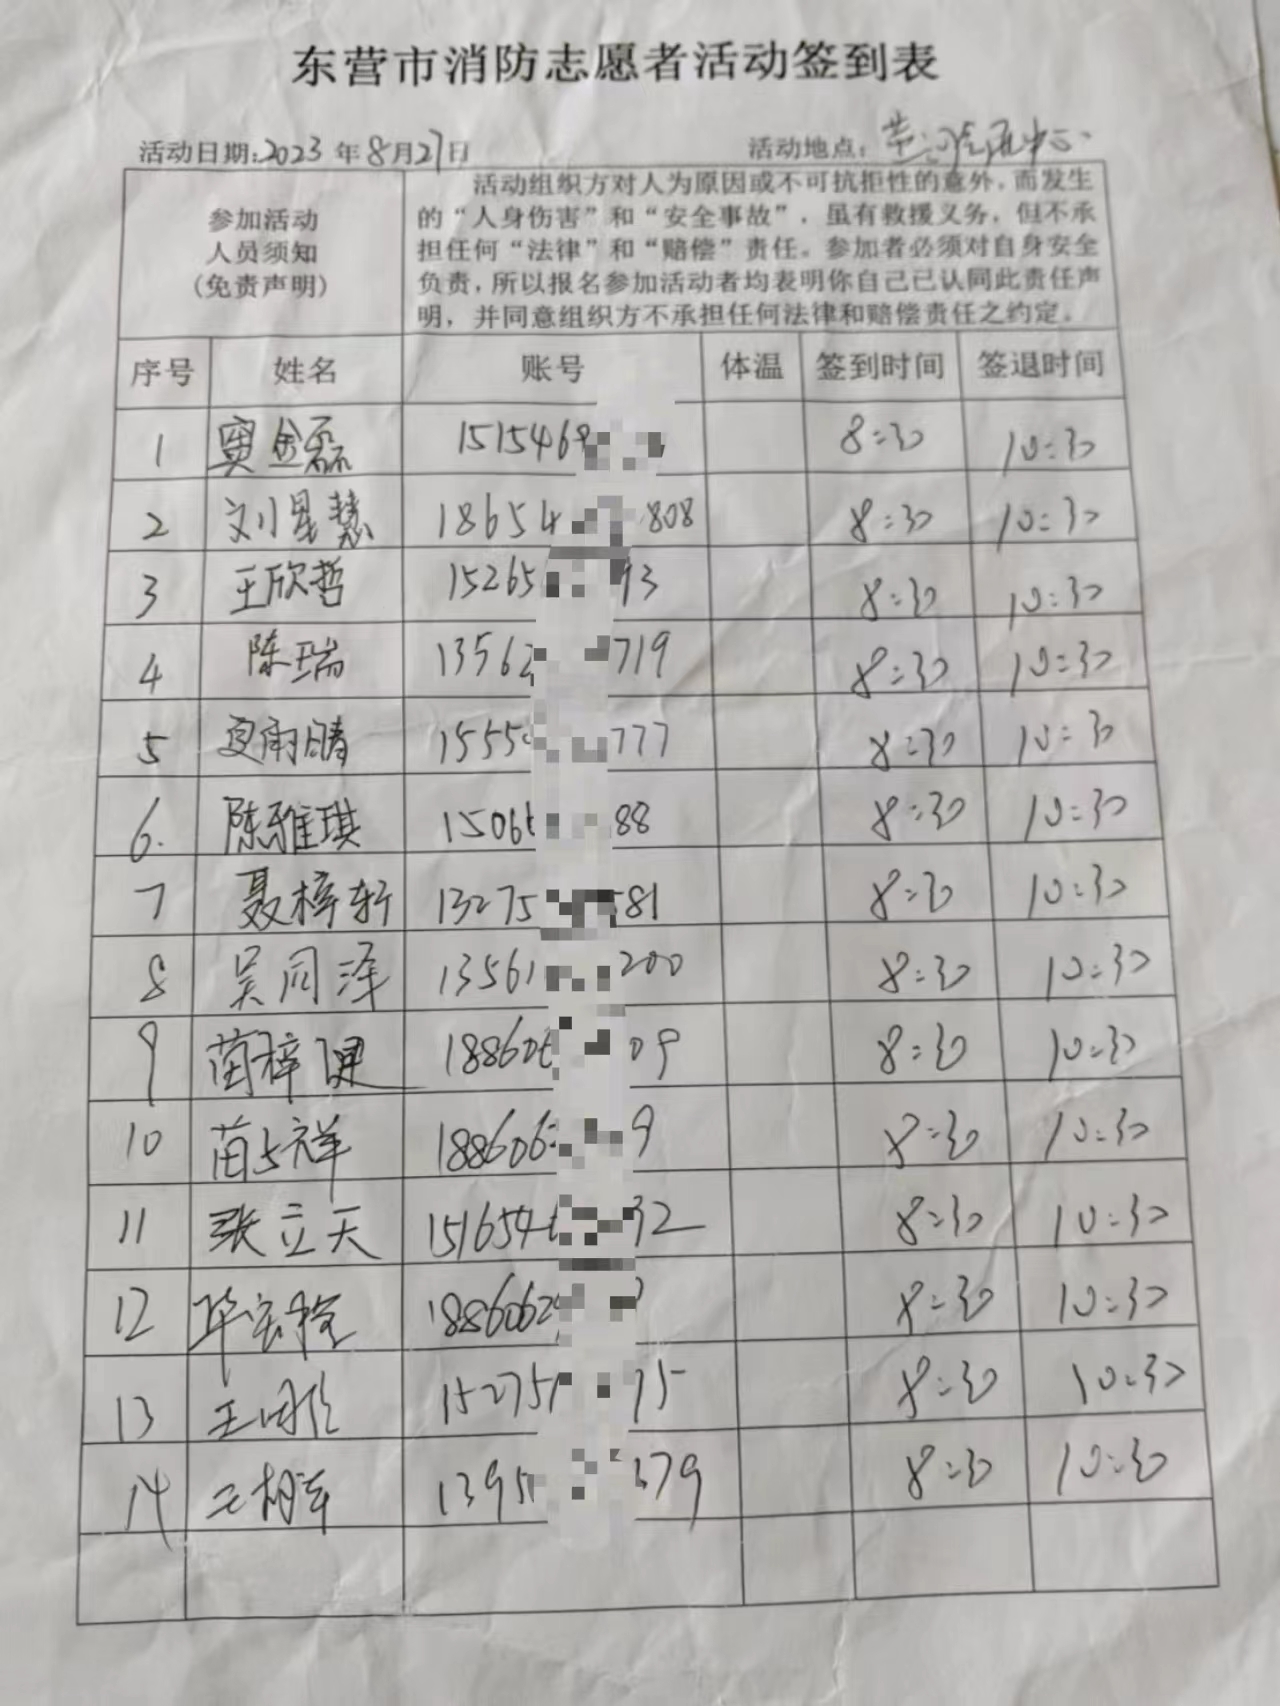 东营市消防志愿者活动签到表
活动日期:2023年8月27日 活动地点:
参加活动
人员须知
(免责声明)
活动组织方对人为原因或不可抗拒性的意外,而发生
的“人身伤害”和“安全事故”,虽有救援义务,但不承
担任何“法律”和“赔偿”责任。参加者必须对自身安全
负责,所以报名参加活动者均表明你自己已认同此责任声
明,并同意组织方不承担任何法律和赔偿责任之约定。
序号 姓名 账号 体温 签到时间 签退时间
1 窦金磊 1515468 8:30 10:30
2 刘星慧 18654 808 8:30 10:30
3 王欣哲 15265 93 8:30 10:30
4 陈瑞 13562 719 8:30 10:30
5 夏雨晴 1555 777 8:30 10:30
6. 陈雅琪 1506 88 8:30 10:30
7 聂梓轩 13275 581 8:30 10:30
8 吴同泽 13561 200 8:30 10:30
9 苗梓 1886 09 8:30 10:30
10 苗占祥 188606 9 8:30 10:30
11 张立天 151654 32 8:30 10:30
12 1886062 8:30 10:30
13 王 15275 75 8:30 10:30
14 王 1395 379 8:30 10:30